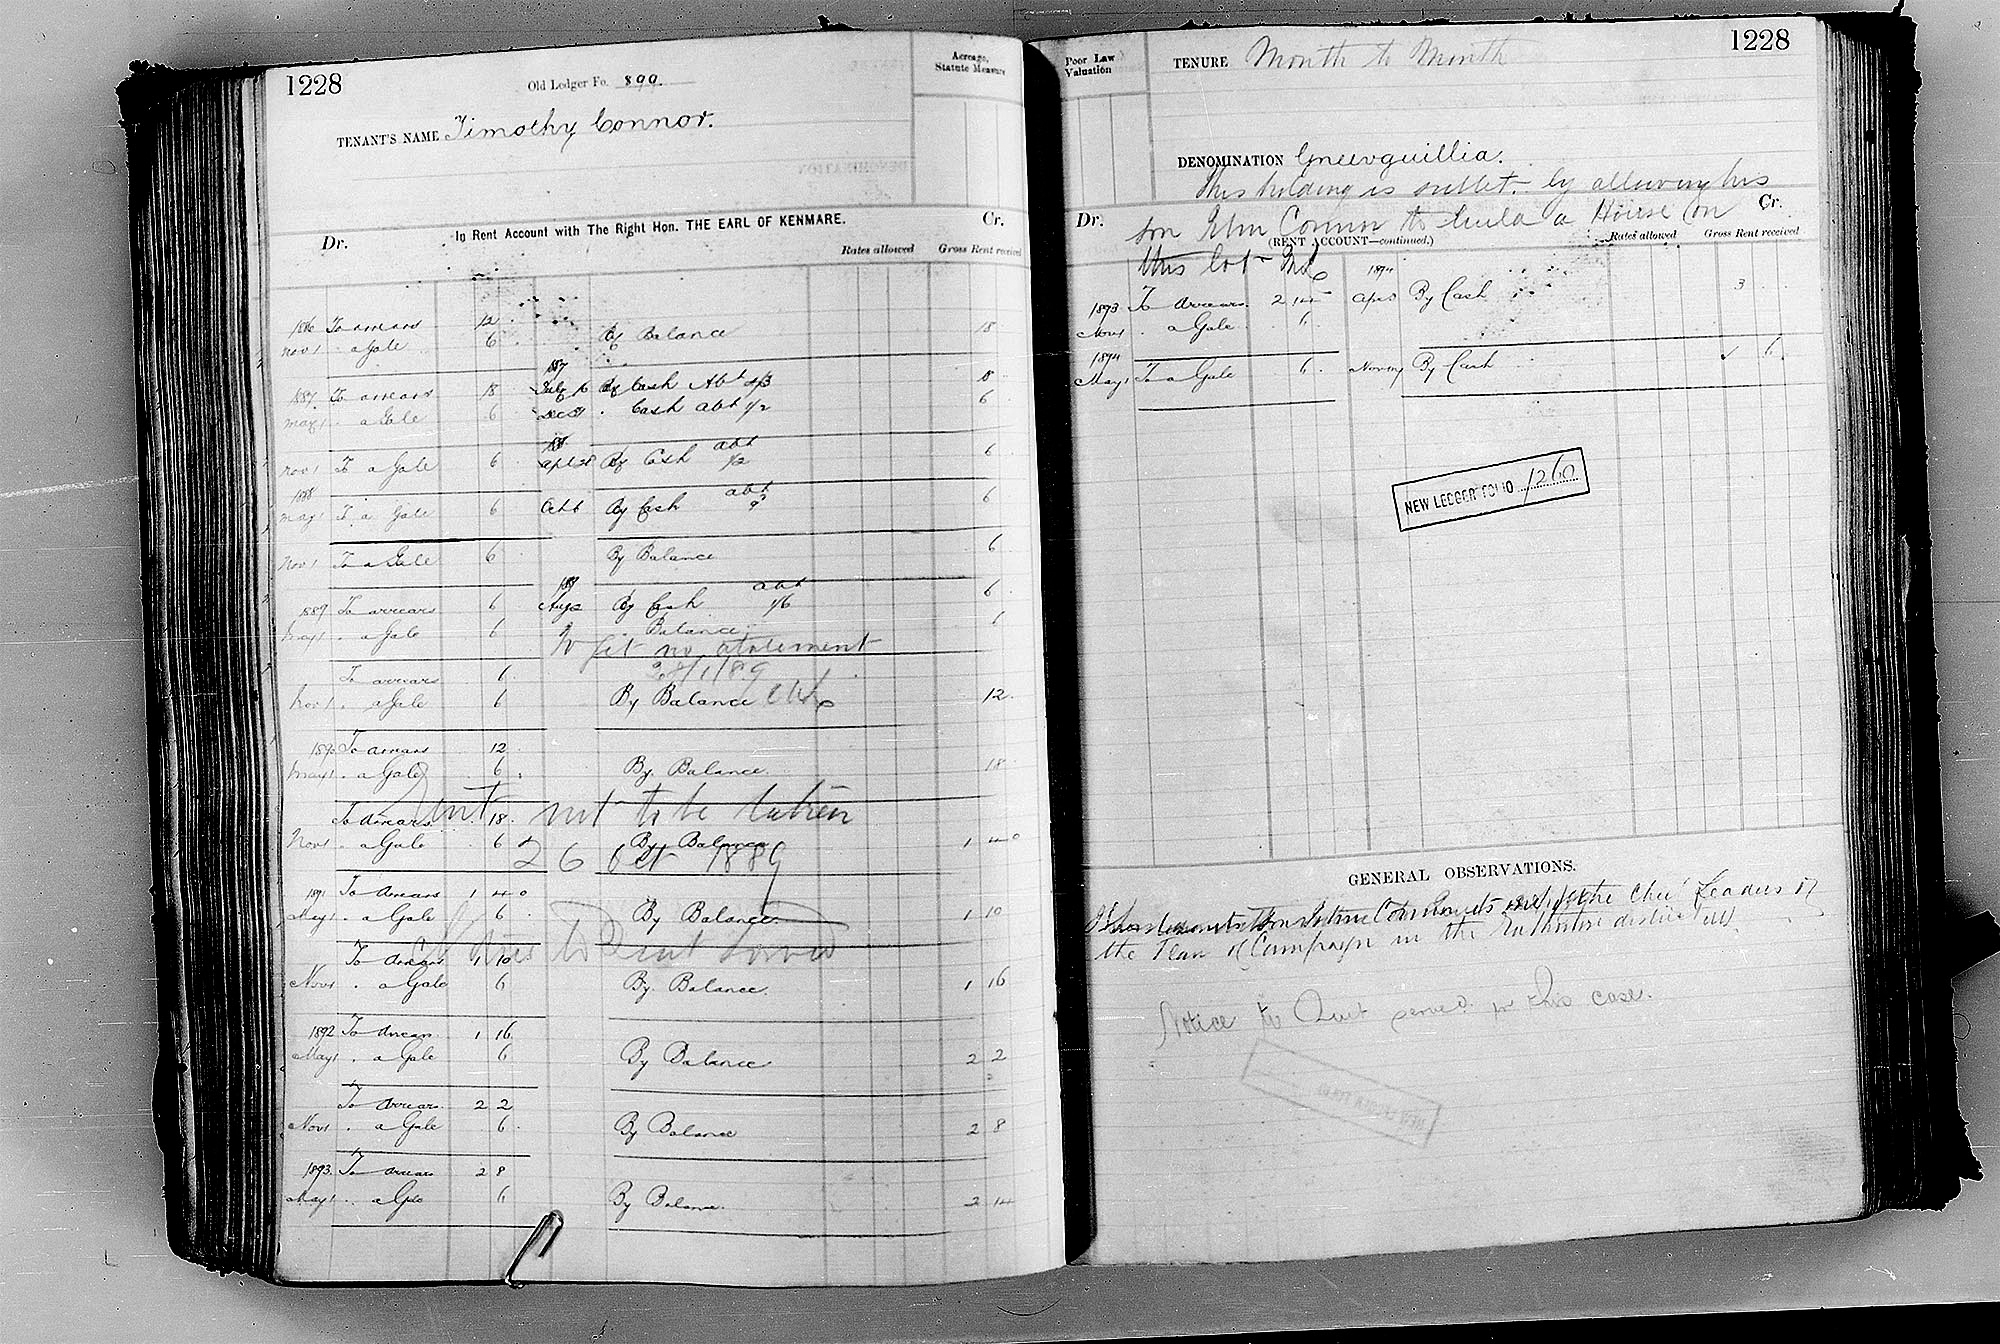 1228
Old Ledger Fo. 899.
Acreage, Statute Measure
TENANT'S NAME Timothy Connor.
In Rent Account with The Right Hon. THE EARL OF KENMARE.
Dr. Cr.
Rates allowed Gross Rent received
1886 To arrears 12
Nov 1 . a Gale 6 By Balance 18
1887
1887 To arrears 18 July 16 By Cash Abt 4/3 18
May 1 a Gale 6 Dec 31 . Cash abt 1/2 6
188
Nov 1 To a Gale 6 Apl 28 By Cash abt 1/2 6
1888
May 1 To a Gale 6 Oct 6 By Cash abt 6
Nov 1 To a Gale 6 By Balance 6
1889
1889 To arrears 6 Aug 2 By Cash abt 1/6 6
May 1 . a Gale 6 . Balance 6
To get no statement
/1/89
To arrears 6
Nov 1 . a Gale 6 By Balance 12
1890 To arrears 12
May 1 . a Gale 6 By Balance 18
not to be taken
To arrears 18
Nov 1 . a Gale 6 By Balance 1 4 0
26 Oct 1889
1891 To Arrears 1 4 0
May 1 . a Gale 6 By Balance 1 10
to Quit served
To Arrears 1 10
Nov 1 . a Gale 6 By Balance 1 16
1892 To Arrears 1 16
May 1 . a Gale 6 By Balance 2 2
To Arrears 2 2
Nov 1 . a Gale 6 By Balance 2 8
1893 To arrears 2 8
May 1 . a Gale 6 By Balance 2 14
Poor Law Valuation
TENURE Month to Month
1228
DENOMINATION Gneevguillia.
This holding is sublet by allowing his
Dr. son John Connor to build a House on Cr.
(RENT ACCOUNT—continued.)
Rates allowed Gross Rent received
this lot
1894
1893 To Arrears 2 14 Apl By Cash 3
Nov 1 . a Gale 6
1894
May 1 To a Gale 6 Nov By Cash 6
NEW LEDGER FOLIO 1260
GENERAL OBSERVATIONS.
son John Connor is one of the Chief Leaders of
the Plan of Campaign in the district
Notice to Quit served in this case.